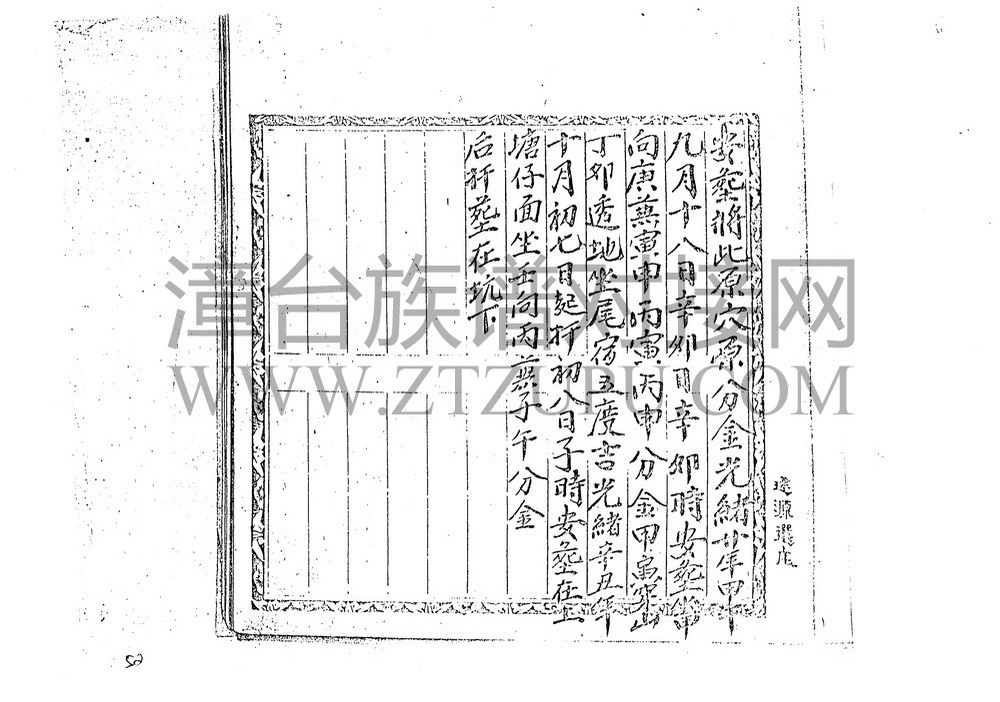 安塟將此原穴原分金光緒廿年甲午
九月十八日辛卯日辛卯時安塟坐甲
向庚蒹寅申丙寅丙申分金甲寅穿山
丁卯透地坐尾宿五度吉光緒辛丑年
十月初七日起扦初八日子時安塟在上
塘仔面坐壬向丙蒹子午分金
后扦塟在坑下
源
漳台族谱对接网
WWW.ZTZUPU.COM
52